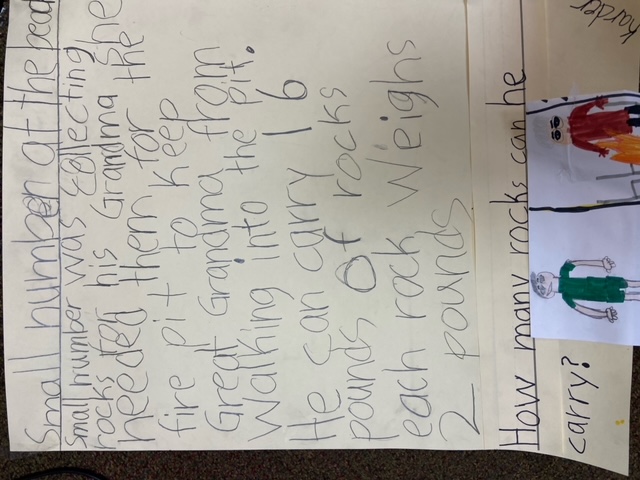 Small number at the beach
Small number was collecting
rocks for his Grandma she
needed them for the
fire pit to keep
Great Grandma from
Walking into the pit.
He can carry 16
pounds of rocks
each rock weighs
2 pounds
How many rocks can he
carry?
harder